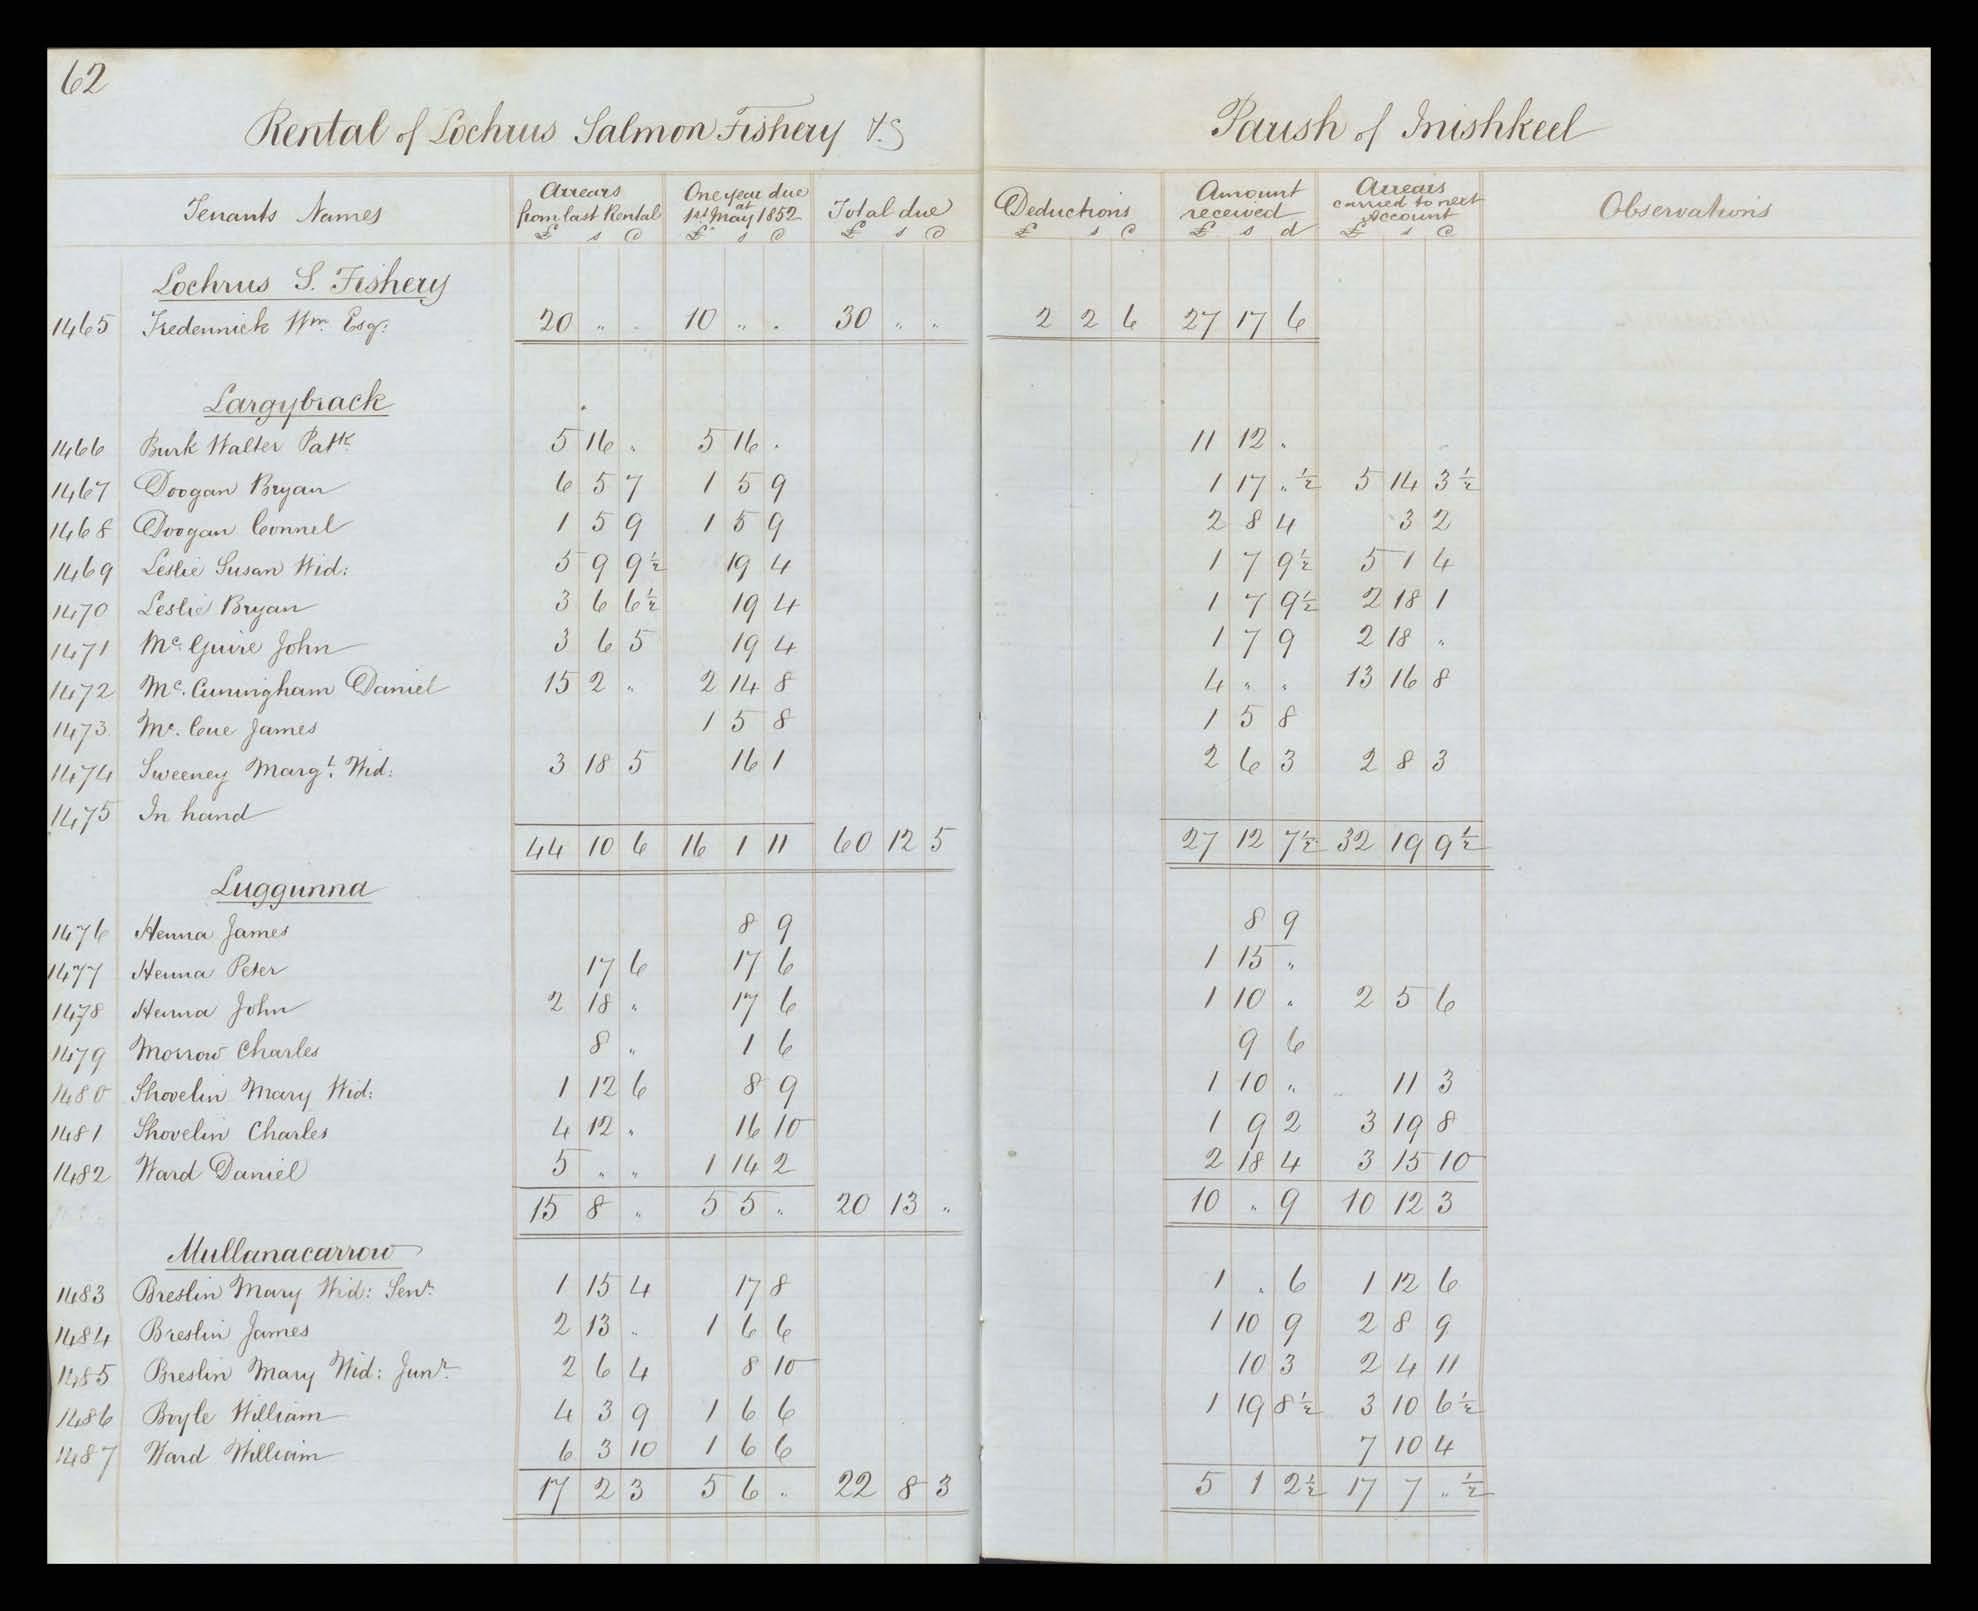 62
Rental of Lochrus Salmon Fishery &c Parish of Inishkeel
Tenants Names | Arrears from last Rental £ s d | One year due at 1st May 1852 £ s d | Total due £ s d | Deductions £ s d | Amount received £ s d | Arrears carried to next Account £ s d | Observations
Lochrus S. Fishery
1465 Tredennick Wm. Esqr: 20 " " 10 " " 30 " " 2 2 6 27 17 6
Largybrack
1466 Burk Walter Patk. 5 16 " 5 16 " 11 12 "
1467 Doogan Bryan 6 5 7 1 5 9 1 17 " ½ 5 14 3½
1468 Doogan Connel 1 5 9 1 5 9 2 8 4 3 2
1469 Leslie Susan Wid: 5 9 9½ 19 4 1 7 9½ 5 1 4
1470 Leslie Bryan 3 6 6½ 19 4 1 7 9½ 2 18 1
1471 Mc. Guire John 3 6 5 19 4 1 7 9 2 18 "
1472 Mc. Cunningham Daniel 15 2 " 2 14 8 4 " " 13 16 8
1473 Mc. Cue James 1 5 8 1 5 8
1474 Sweeney Margt. Wid: 3 18 5 16 1 2 6 3 2 8 3
1475 In hand
44 10 6 16 1 11 60 12 5 27 12 7½ 32 19 9½
Luggunna
1476 Henna James 8 9 8 9
1477 Henna Peter 17 6 17 6 1 15 "
1478 Henna John 2 18 " 17 6 1 10 " 2 5 6
1479 Morrow Charles 8 " 1 6 9 6
1480 Shovelin Mary Wid: 1 12 6 8 9 1 10 " 11 3
1481 Shovelin Charles 4 12 " 16 10 1 9 2 3 19 8
1482 Ward Daniel 5 " " 1 14 2 2 18 4 3 15 10
15 8 " 5 5 " 20 13 " 10 " 9 10 12 3
Mullanacarrow
1483 Breslin Mary Wid: Senr. 1 15 4 17 8 1 " 6 1 12 6
1484 Breslin James 2 13 " 1 6 6 1 10 9 2 8 9
1485 Breslin Mary Wid: Junr. 2 6 4 8 10 10 3 2 4 11
1486 Boyle William 4 3 9 1 6 6 1 19 8½ 3 10 6½
1487 Ward William 6 3 10 1 6 6 7 10 4
17 2 3 5 6 " 22 8 3 5 1 2½ 17 7 " ½